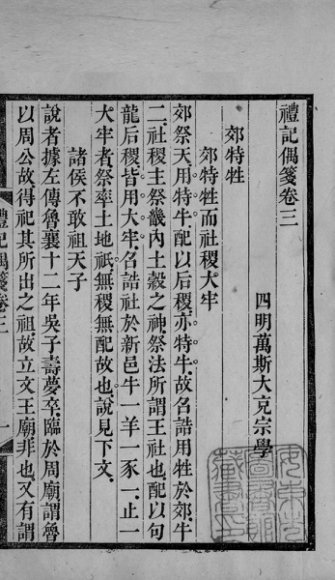 禮記偶箋卷三
四明萬斯大充宗學
郊特牲
郊特牲而社稷大牢
郊祭天用特牛配以后稷亦特牛故召誥用牲於郊牛
二社稷主祭畿內土穀之神祭法所謂王社也配以句
龍后稷皆用大牢召誥社於新邑牛一羊一豕一止一
大牢者祭率土地祇無稷無配故也說見下文
諸侯不敢祖天子
說者據左傳魯襄十二年吳子壽夢卒臨於周廟謂魯
以周公故得祀其所出之祖故立文王廟非也又有謂
禮記偶箋卷三
一